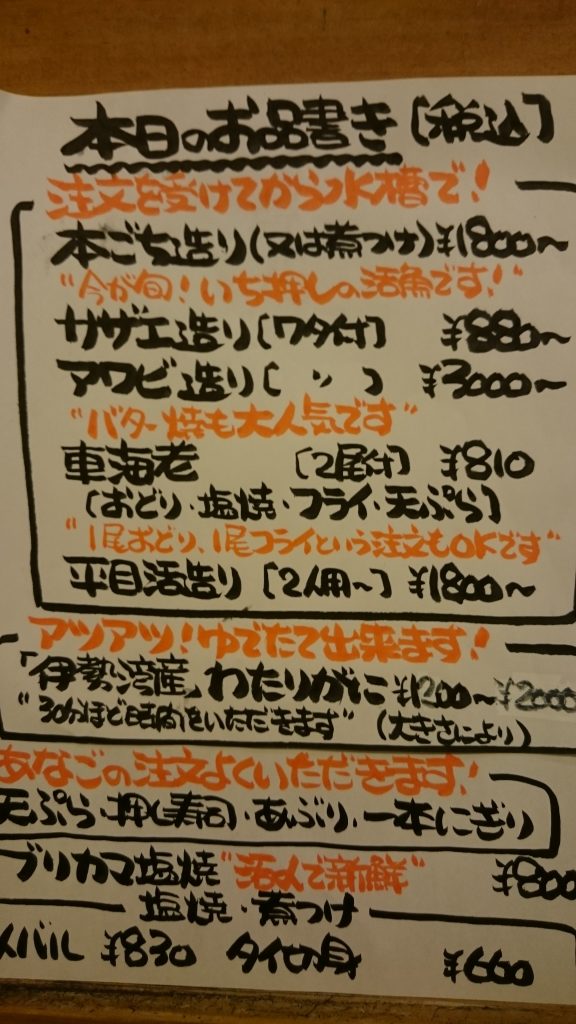 本日のお品書き [税込]
注文を受けてから水槽で!
本ごち造り(又は煮つけ)¥1800〜
"今が旬!いち押しの活魚です!"
サザエ造り[ワタ付] ¥880〜
アワビ造り[ 〃 ] ¥3000〜
"バター焼も大人気です"
車海老 [2尾付] ¥810
[おどり・塩焼・フライ・天ぷら]
"1尾おどり、1尾フライという注文もOKです"
平目活造り [2人用〜] ¥1800〜
アツアツ!ゆでたて出来ます!
「伊勢湾産」わたりがに ¥1200〜¥2000
"30分ほど時間をいただきます" (大きさにより)
あなごの注文よくいただきます!
天ぷら・押し寿司・あぶり・一本にぎり
ブリカマ塩焼"活〆で新鮮" ¥800
塩焼・煮つけ
メバル ¥830 タイ切身 ¥660